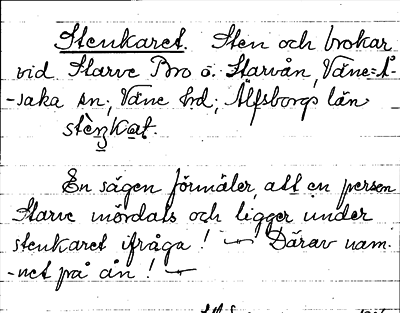 Stenkaret. Sten och brokar
vid Starve Bro o. Starvån, Väne=Å-
-saka sn; Väne hd; Älfsborgs län
stènkat.
En sägen förmäler, att en person
Starve mördats och ligger under
stenkaret ifråga! — Därav nam-
-net på ån! —